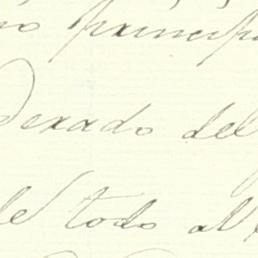 no princip
derado del
de todo al